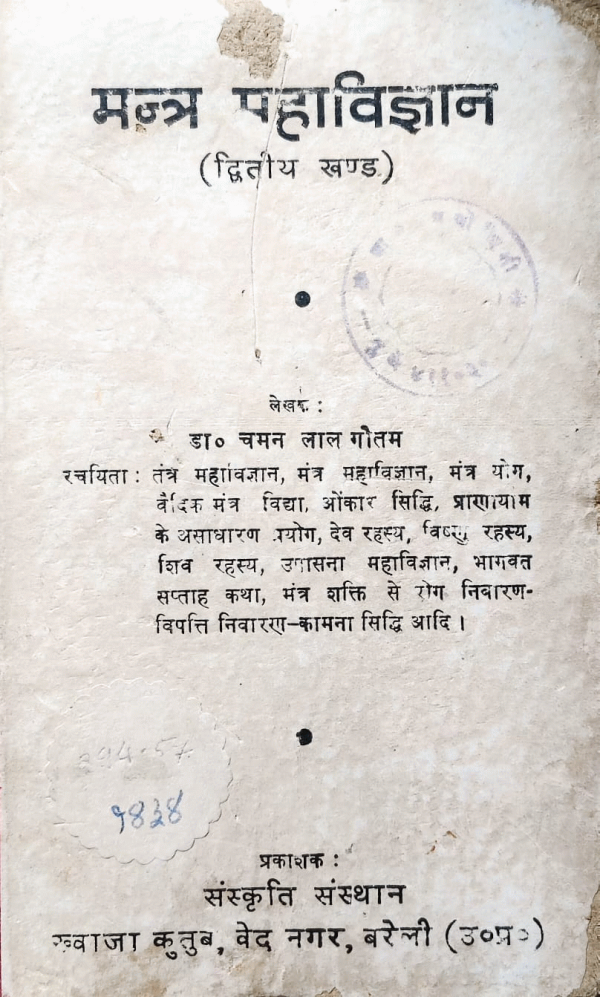 मन्त्र महाविज्ञान
(द्वितीय खण्ड)
लेखक :
डा० चमन लाल गौतम
रचयिता : तंत्र महाविज्ञान, मंत्र महाविज्ञान, मंत्र योग,
वैदिक मंत्र विद्या, ओंकार सिद्धि, प्राणायाम
के असाधारण प्रयोग, देव रहस्य, विष्णु रहस्य,
शिव रहस्य, उपासना महाविज्ञान, भागवत
सप्ताह कथा, मंत्र शक्ति से रोग निवारण-
विपत्ति निवारण-कामना सिद्धि आदि ।
294.57
१४३४
प्रकाशक :
संस्कृति संस्थान
ख्वाजा कुतुब, वेद नगर, बरेली (उ०प्र०)